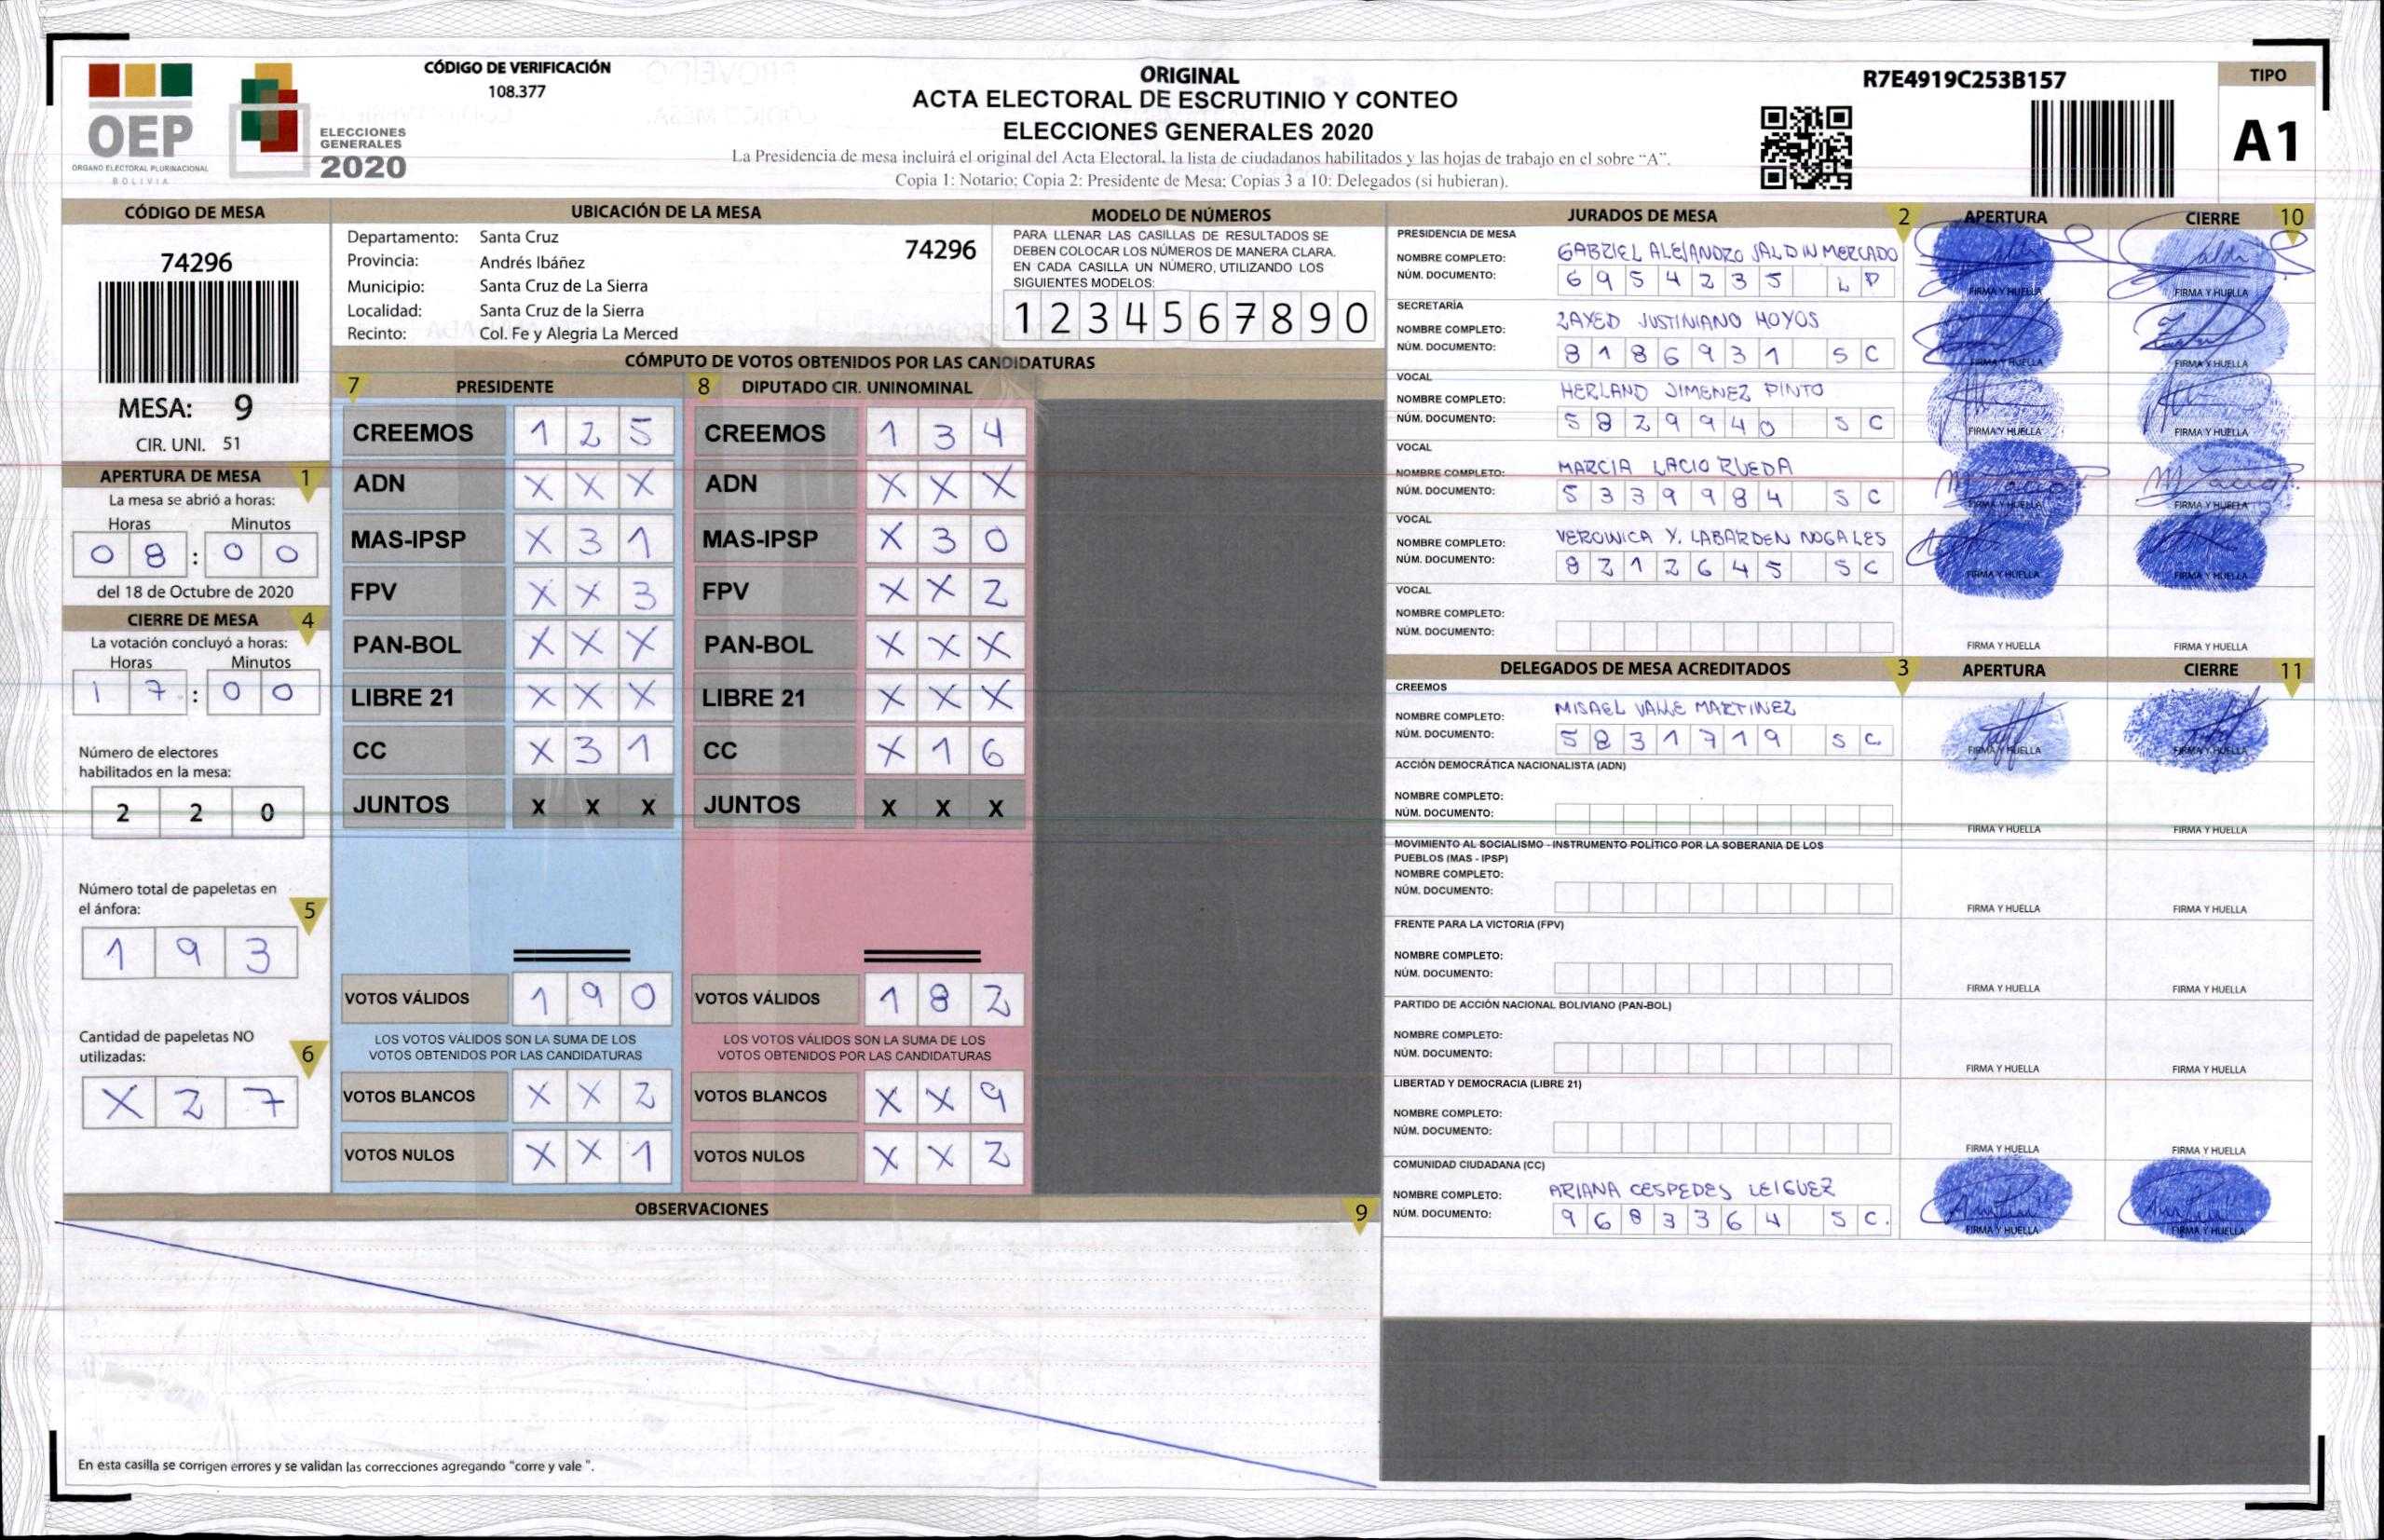 CÓDIGO DE VERIFICACIÓN
108.377
OEP
ÓRGANO ELECTORAL PLURINACIONAL
BOLIVIA
ELECCIONES
GENERALES
2020
ORIGINAL
ACTA ELECTORAL DE ESCRUTINIO Y CONTEO
ELECCIONES GENERALES 2020
La Presidencia de mesa incluirá el original del Acta Electoral, la lista de ciudadanos habilitados y las hojas de trabajo en el sobre "A".
Copia 1: Notario; Copia 2: Presidente de Mesa; Copias 3 a 10: Delegados (si hubieran).
R7E4919C253B157
TIPO
A1
CÓDIGO DE MESA
74296
MESA: 9
CIR. UNI. 51
APERTURA DE MESA 1
La mesa se abrió a horas:
Horas Minutos
0 8 : 0 0
del 18 de Octubre de 2020
CIERRE DE MESA 4
La votación concluyó a horas:
Horas Minutos
1 7 : 0 0
Número de electores
habilitados en la mesa:
2 2 0
Número total de papeletas en
el ánfora: 5
1 9 3
Cantidad de papeletas NO
utilizadas: 6
X 2 7
UBICACIÓN DE LA MESA
Departamento: Santa Cruz
Provincia: Andrés Ibáñez
Municipio: Santa Cruz de La Sierra
Localidad: Santa Cruz de la Sierra
Recinto: Col. Fe y Alegria La Merced
74296
MODELO DE NÚMEROS
PARA LLENAR LAS CASILLAS DE RESULTADOS SE
DEBEN COLOCAR LOS NÚMEROS DE MANERA CLARA.
EN CADA CASILLA UN NÚMERO, UTILIZANDO LOS
SIGUIENTES MODELOS:
1 2 3 4 5 6 7 8 9 0
CÓMPUTO DE VOTOS OBTENIDOS POR LAS CANDIDATURAS
7 PRESIDENTE
CREEMOS 1 2 5
ADN X X X
MAS-IPSP X 3 1
FPV X X 3
PAN-BOL X X X
LIBRE 21 X X X
CC X 3 1
JUNTOS X X X
VOTOS VÁLIDOS 1 9 0
LOS VOTOS VÁLIDOS SON LA SUMA DE LOS
VOTOS OBTENIDOS POR LAS CANDIDATURAS
VOTOS BLANCOS X X 2
VOTOS NULOS X X 1
8 DIPUTADO CIR. UNINOMINAL
CREEMOS 1 3 4
ADN X X X
MAS-IPSP X 3 0
FPV X X 2
PAN-BOL X X X
LIBRE 21 X X X
CC X 1 6
JUNTOS X X X
VOTOS VÁLIDOS 1 8 2
LOS VOTOS VÁLIDOS SON LA SUMA DE LOS
VOTOS OBTENIDOS POR LAS CANDIDATURAS
VOTOS BLANCOS X X 9
VOTOS NULOS X X 2
OBSERVACIONES 9
En esta casilla se corrigen errores y se validan las correcciones agregando "corre y vale ".
JURADOS DE MESA 2 APERTURA CIERRE 10
PRESIDENCIA DE MESA
NOMBRE COMPLETO: GABRIEL ALEJANDRO SALDIN MERCADO
NÚM. DOCUMENTO: 6 9 5 4 2 3 5 L P
FIRMA Y HUELLA FIRMA Y HUELLA
SECRETARÍA
NOMBRE COMPLETO: ZAYED JUSTINIANO HOYOS
NÚM. DOCUMENTO: 8 1 8 6 9 3 1 S C
FIRMA Y HUELLA FIRMA Y HUELLA
VOCAL
NOMBRE COMPLETO: HERLAND JIMENEZ PINTO
NÚM. DOCUMENTO: 5 8 2 9 9 4 0 S C
FIRMA Y HUELLA FIRMA Y HUELLA
VOCAL
NOMBRE COMPLETO: MARCIA LACIO RUEDA
NÚM. DOCUMENTO: 5 3 3 9 9 8 4 S C
FIRMA Y HUELLA FIRMA Y HUELLA
VOCAL
NOMBRE COMPLETO: VERONICA Y. LABARDEN NOGALES
NÚM. DOCUMENTO: 8 2 1 2 6 4 5 S C
FIRMA Y HUELLA FIRMA Y HUELLA
VOCAL
NOMBRE COMPLETO:
NÚM. DOCUMENTO:
FIRMA Y HUELLA FIRMA Y HUELLA
DELEGADOS DE MESA ACREDITADOS 3 APERTURA CIERRE 11
CREEMOS
NOMBRE COMPLETO: MISAEL VALLE MARTINEZ
NÚM. DOCUMENTO: 5 8 3 1 7 1 9 S C
FIRMA Y HUELLA FIRMA Y HUELLA
ACCIÓN DEMOCRÁTICA NACIONALISTA (ADN)
NOMBRE COMPLETO:
NÚM. DOCUMENTO:
FIRMA Y HUELLA FIRMA Y HUELLA
MOVIMIENTO AL SOCIALISMO - INSTRUMENTO POLÍTICO POR LA SOBERANIA DE LOS
PUEBLOS (MAS - IPSP)
NOMBRE COMPLETO:
NÚM. DOCUMENTO:
FIRMA Y HUELLA FIRMA Y HUELLA
FRENTE PARA LA VICTORIA (FPV)
NOMBRE COMPLETO:
NÚM. DOCUMENTO:
FIRMA Y HUELLA FIRMA Y HUELLA
PARTIDO DE ACCIÓN NACIONAL BOLIVIANO (PAN-BOL)
NOMBRE COMPLETO:
NÚM. DOCUMENTO:
FIRMA Y HUELLA FIRMA Y HUELLA
LIBERTAD Y DEMOCRACIA (LIBRE 21)
NOMBRE COMPLETO:
NÚM. DOCUMENTO:
FIRMA Y HUELLA FIRMA Y HUELLA
COMUNIDAD CIUDADANA (CC)
NOMBRE COMPLETO: ARIANA CESPEDES LEIGUEZ
NÚM. DOCUMENTO: 9 6 8 3 3 6 4 S C.
FIRMA Y HUELLA FIRMA Y HUELLA